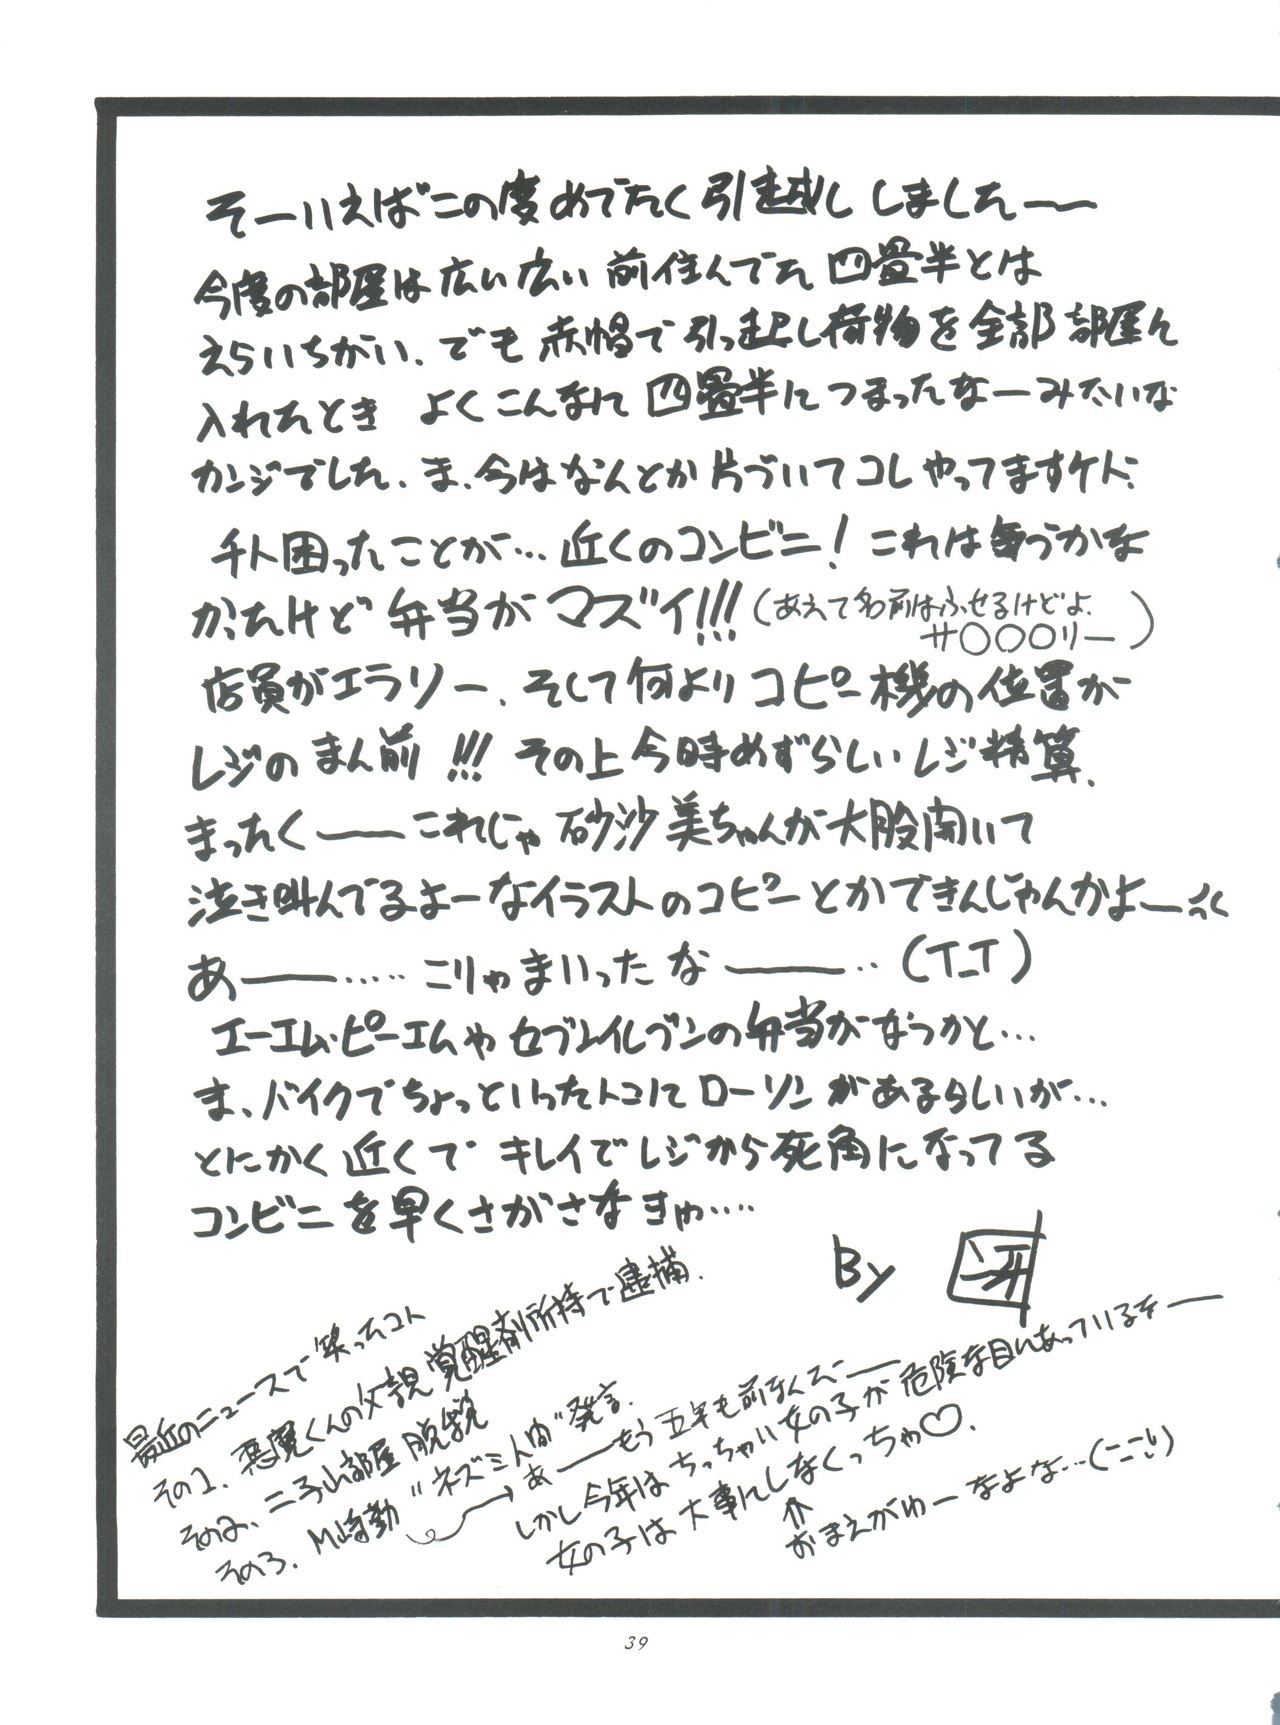 そーいえばこの度めでたく引越ししましたー
今度の部屋は広い広い前住んでた四畳半とは
えらいちがい、でも赤帽で引っ越し荷物を全部部屋に
入れたとき よくこんなに四畳半につまったなーみたいな
カンジでした、ま、今はなんとか片づいてコレやってますケド、
チト困ったことが…近くのコンビニ!これは
かったけど弁当がマズイ!!!(あえて名前はふせるけどよ、
サ○○○リー)
店員がエラソー、そして何よりコピー機の位置が
レジのまん前!!!その上今時めずらしいレジ精算、
まったくーーこれじゃ砂沙美ちゃんが大股開いて
泣き叫んでるよーなイラストのコピーとかできんじゃんかよー
あーー……こりゃまいったなーー‥(T_T)
エーエム・ピーエムやセブンイレブンの弁当がなつかと…
ま、バイクでちょっといったトコにローソンがあるらしいが…
とにかく近くでキレイでレジから死角になってる
コンビニを早くさがさなきゃ……
By
最近のニュースで笑ったコト
その1、悪魔くんの父親覚醒剤所持で逮捕、
その2、二子山部屋脱税
その3、M崎勤"ネズミ人間"発言、
あーーもう五年も前なんだーー
しかし今年はちっちゃい女の子が危険な目にあっているなー
女の子は大事にしなくっちゃ♡、
おまえがゆーなよな…(ここし)
39